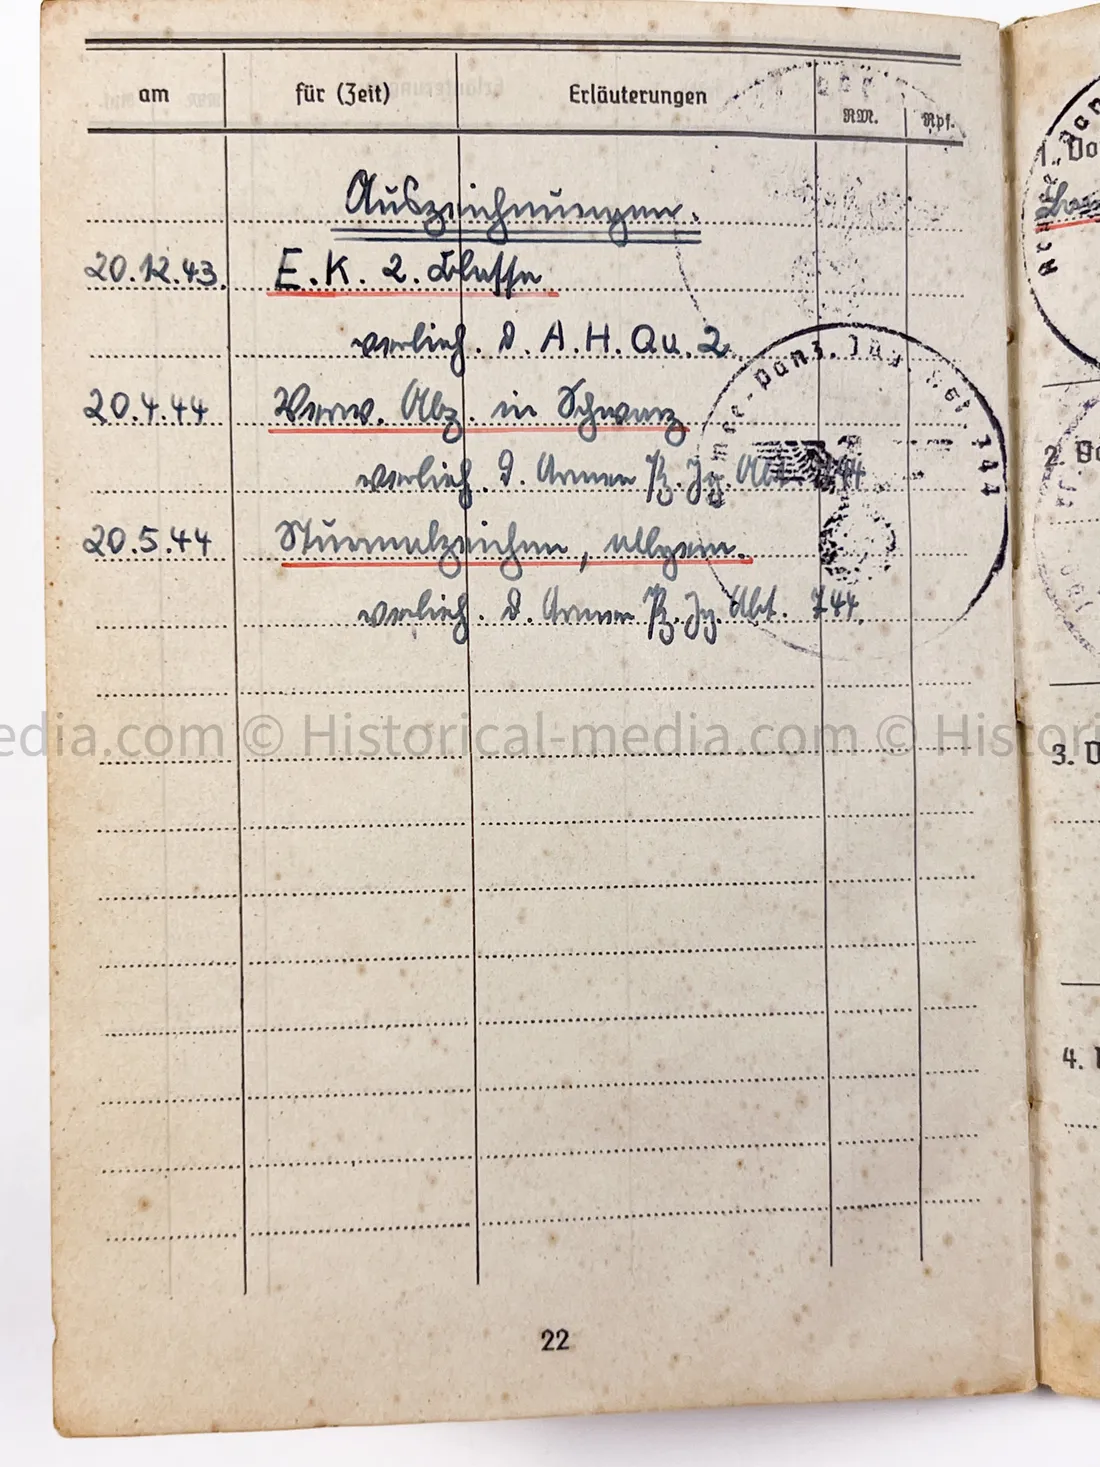 am für (Zeit) Erläuterungen RM. Rpf.
Auszeichnungen.
20.12.43. E.K. 2. Klasse
verlieh. d. A.H.Qu. 2.
20.4.44 Verw. Abz. in Schwarz
verlieh. d. Armee Pz. Jg. Abt. 744
20.5.44 Sturmabzeichen, allgem.
verlieh. d. Armee Pz. Jg. Abt. 744.
Panz. Jäg.
744
edia.com © Historical-media.com © Histori
22
1. Do
2.
3.
4.